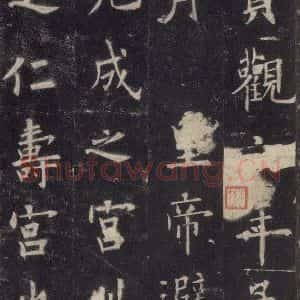 貞觀六年
月皇帝避
九成之宮此
之仁壽宮也
Shufawang.CN